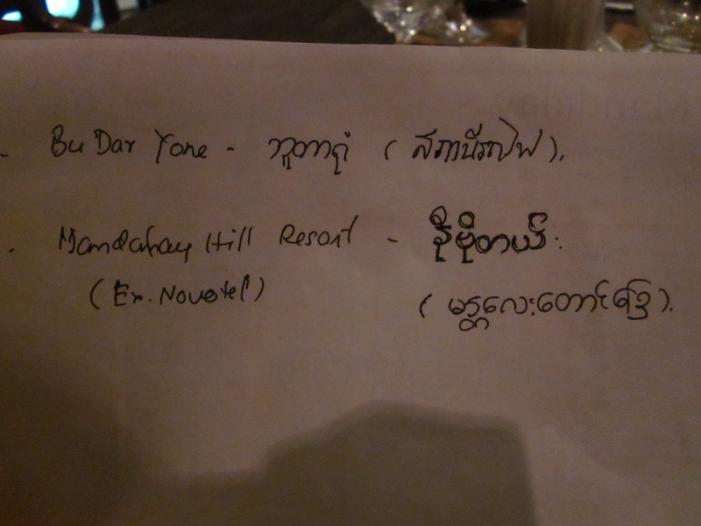 - Bu Dar Yone - ဘူတာရုံ ( สถานีรถไฟ ).
. Mandalay Hill Resort - နိုဗိုတယ် :
(Ex. Novotel) ( မန္တလေးတောင်ခြေ ).